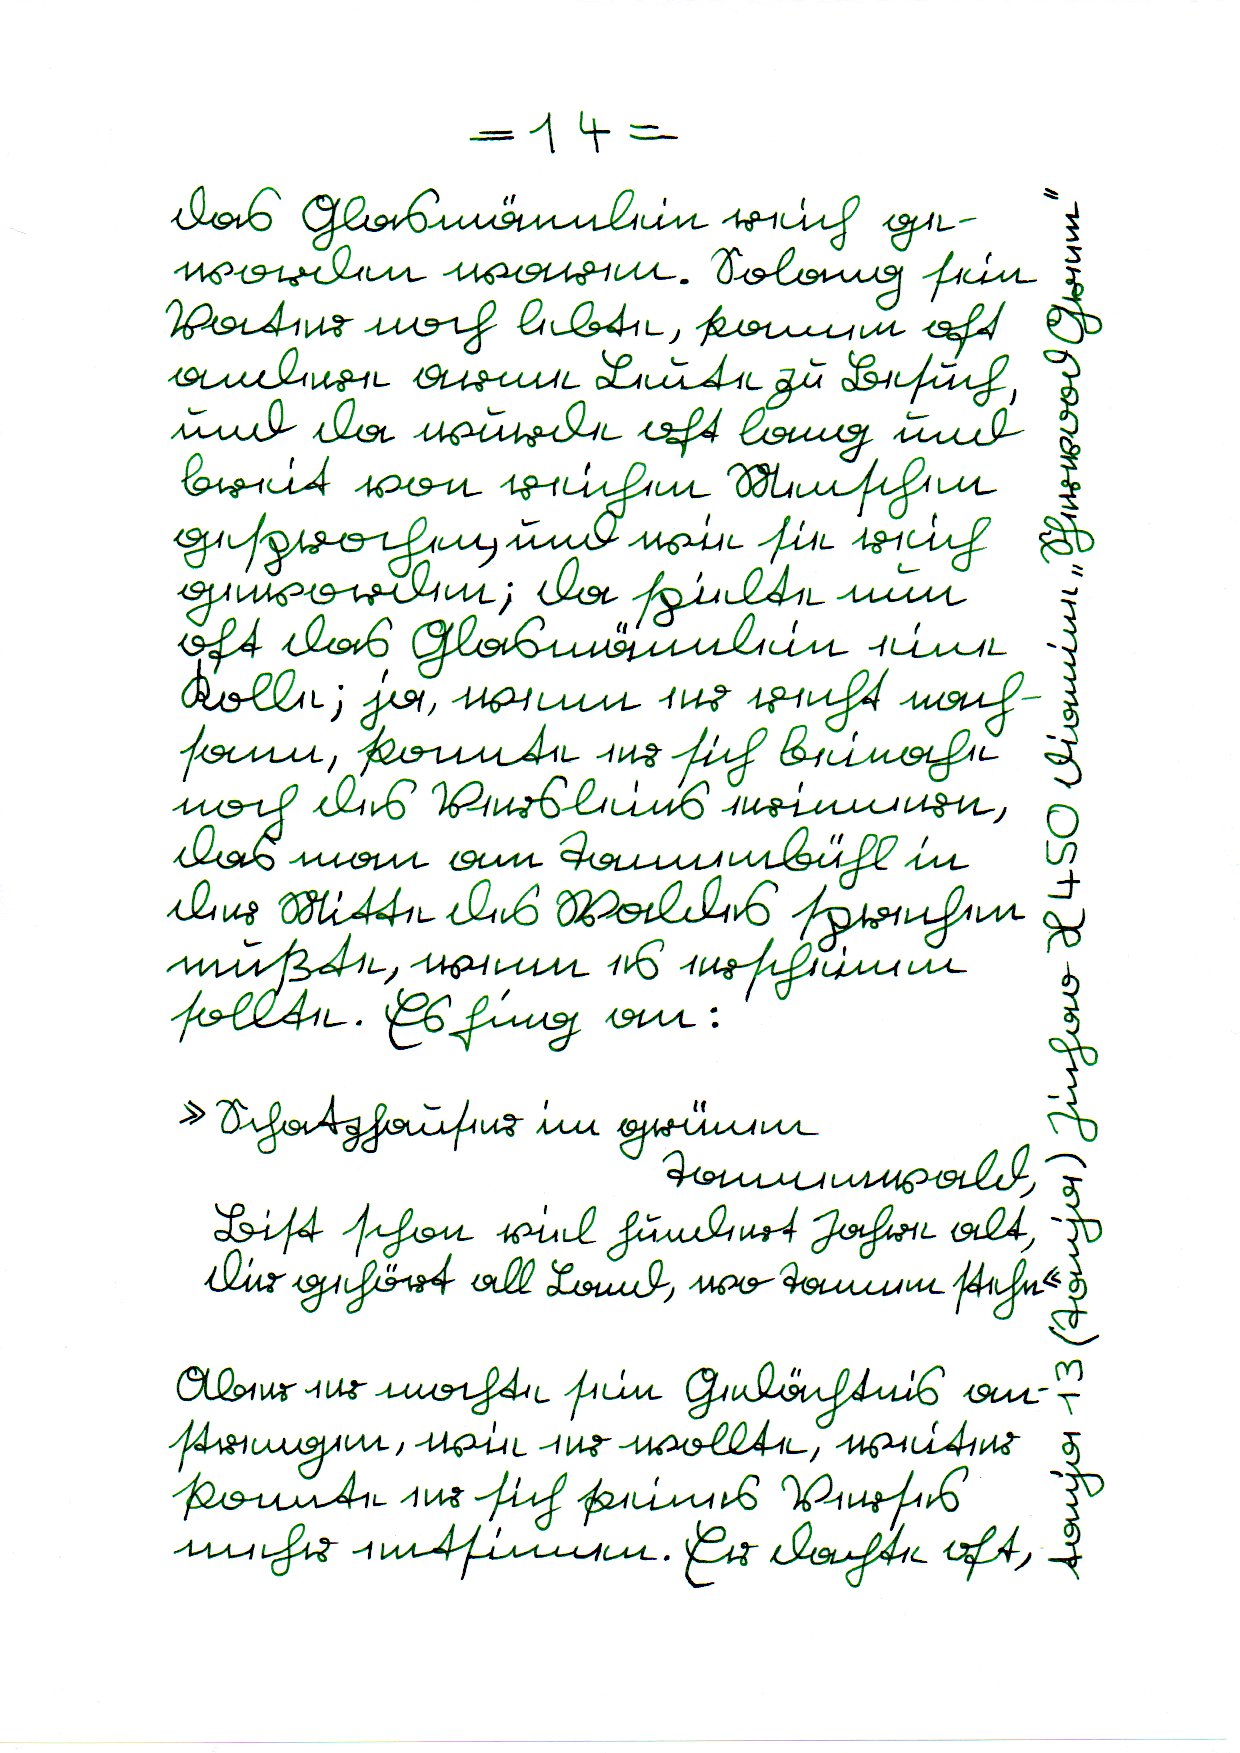 = 14 =
das Glasmännlein reich ge-
worden waren. Solang sein
Vater noch lebte, kamen oft
andere arme Leute zu Besuch,
und da wurde oft lang und
breit von reichen Menschen
gesprochen, und wie sie reich
geworden; da spielte nun
oft das Glasmännlein eine
Rolle; ja, wenn er recht nach-
sann, konnte er sich beinahe
noch des Versleins erinnern,
das man am Tannenbühl in
der Mitte des Waldes sprechen
mußte, wenn es erscheinen
sollte. Es fing an:
»Schatzhauser im grünen
Tannenwald,
Bist schon viel hundert Jahre alt,
Dir gehört all Land, wo Tannen stehn«
Aber er mochte sein Gedächtnis an-
strengen, wie er wollte, weiter
konnte er sich keines Verses
mehr entsinnen. Er dachte oft,
tanija 13 (Tanija) Jinhao X450 Diamine „Sherwood Green"